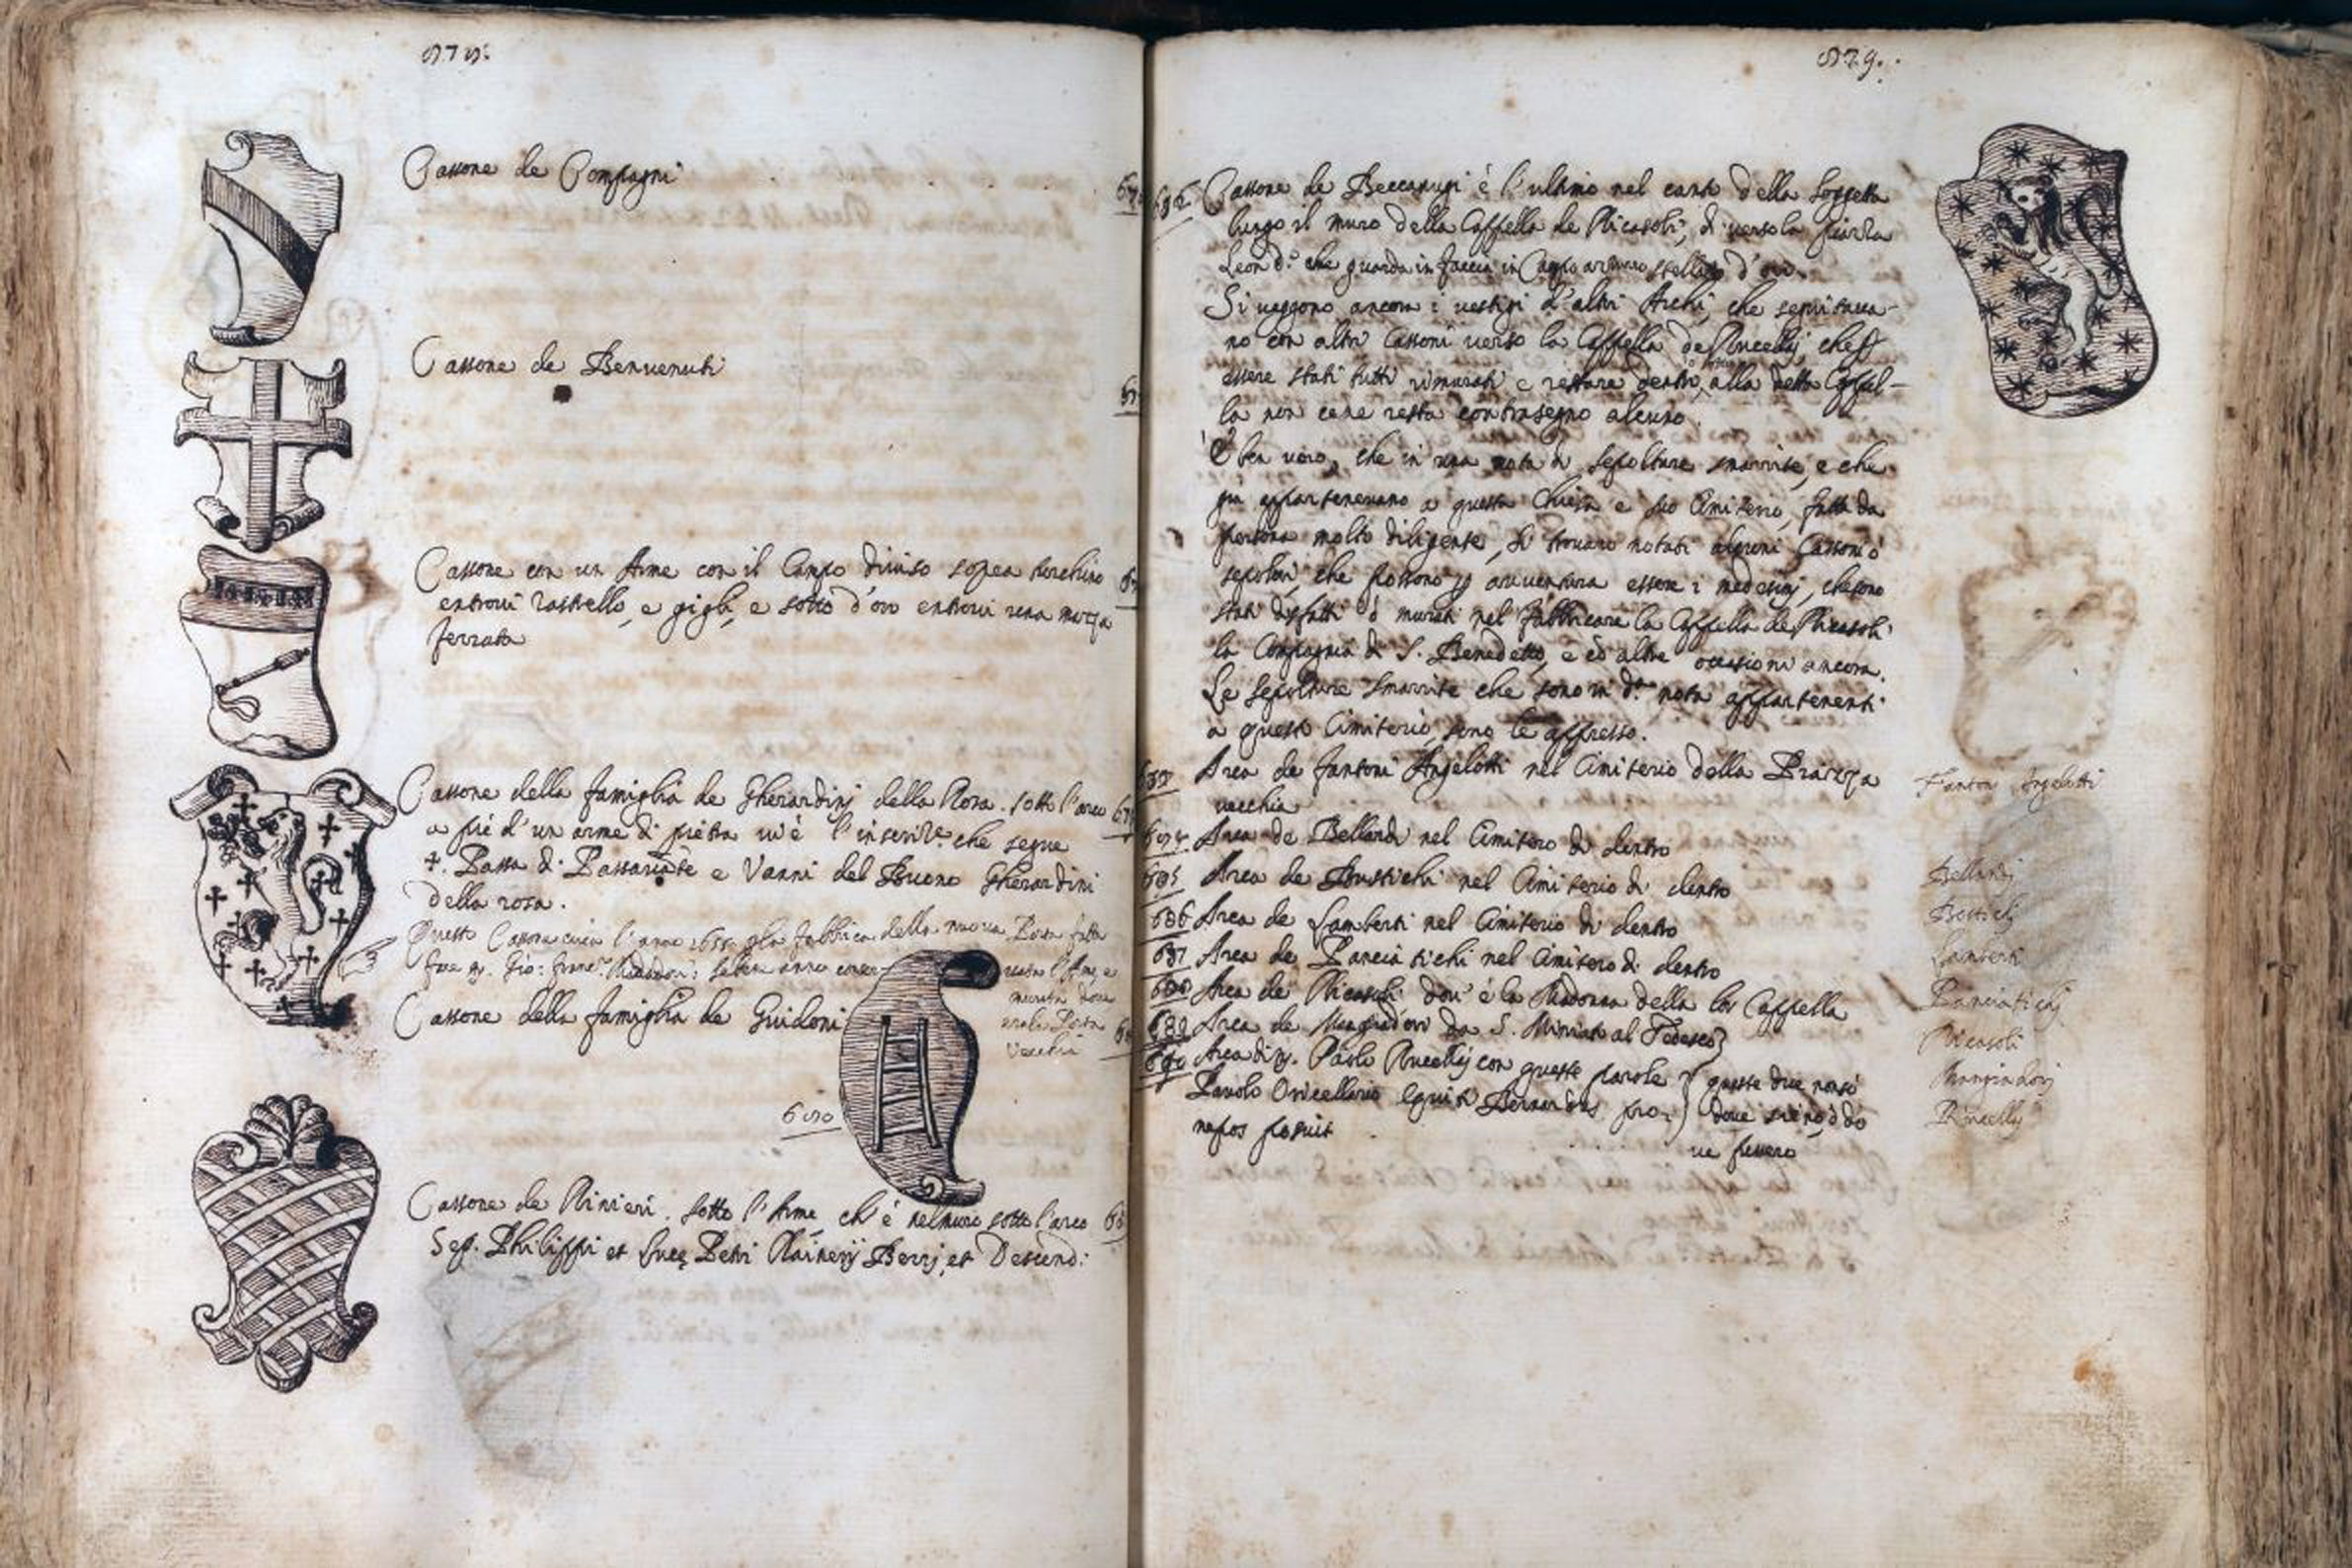 878.
Cassone de Compagni
Cassone de Benvenuti
Cassone con un Arme con il Campo diviso sopra
entrovi rastrello, e gigli, e sotto d'oro entrovi una mazza
ferrata
Cassone della famiglia de Gherardinj della Rosa. sotto l'arco
a piè d'un arme di pietra vi è l'inscriz.e che segue
+. Passa di Passariate e Vanni del Buono Gherardini
della rosa.
Questo Cassone l'anno 1655 la fabbrica della nuova Porta fatta
fare
murata dove
era la Porta
Vecchia
Cassone della famiglia de Guidoni
680
Cassone de Rinieri. sotto l'Arme, ch'è nel muro sotto l'arco
Sep. Philippi et Petri Raineri Berri, et Descend:
879.
682 Cassone de Beccanugi è l'ultimo nel canto della loggetta
lungo il muro della Cappella de Ricasoli, di verso la piazza
Leon d.o che guarda in faccia in Campo stellato d'oro.
Si veggono ancora i vestigi d'altri Archi, che seguitava-
no con altri Cassoni verso la Cappella de Rucellaj che
essere stati tutti rimurati e restare dentro alla detta Cappel-
la non cene resta contrasegno alcuno.
È ben vero, che in una nota di sepolture smarrite, e che
già appartenevano a questa Chiesa e suo Cimiterio, fatta da
persona molto diligente, si trovano notati alcuni Cassoni o
sepolcri, che possono avventura essere i medesimj, che sono
stati disfatti o murati nel fabbricare la Cappella de Ricasoli
la Compagnia di S. Benedetto, e altre occasioni ancora.
Le sepolture smarrite che sono in d.a nota appartenenti
a questo Cimiterio, sono le appresso.
683 Arca de fantoni Angelotti nel Cimiterio della Piazza
vecchia
Fanton Angelotti
684 Arca de Bellandi nel Cimitero di dentro
Bellandj
685 Arca de Bustichi nel Cimiterio di dentro
686 Arca de Lamberti nel Cimiterio di dentro
Lamberti
687 Arca de Panciatichi nel Cimitero di dentro
Panciatichj
688 Arca de Ricasoli dov'è la Madonna della lor Cappella
Ricasoli
689 Arca de Mangiadori da S. Miniato al Tedesco
Mangiadorj
690 Arca di Paolo Rucellaj con queste parole
Paulo Oricellario Bernardus pro
nepos posuit
queste due non so
dove sieno, o do
ve fussero
Rucellaj